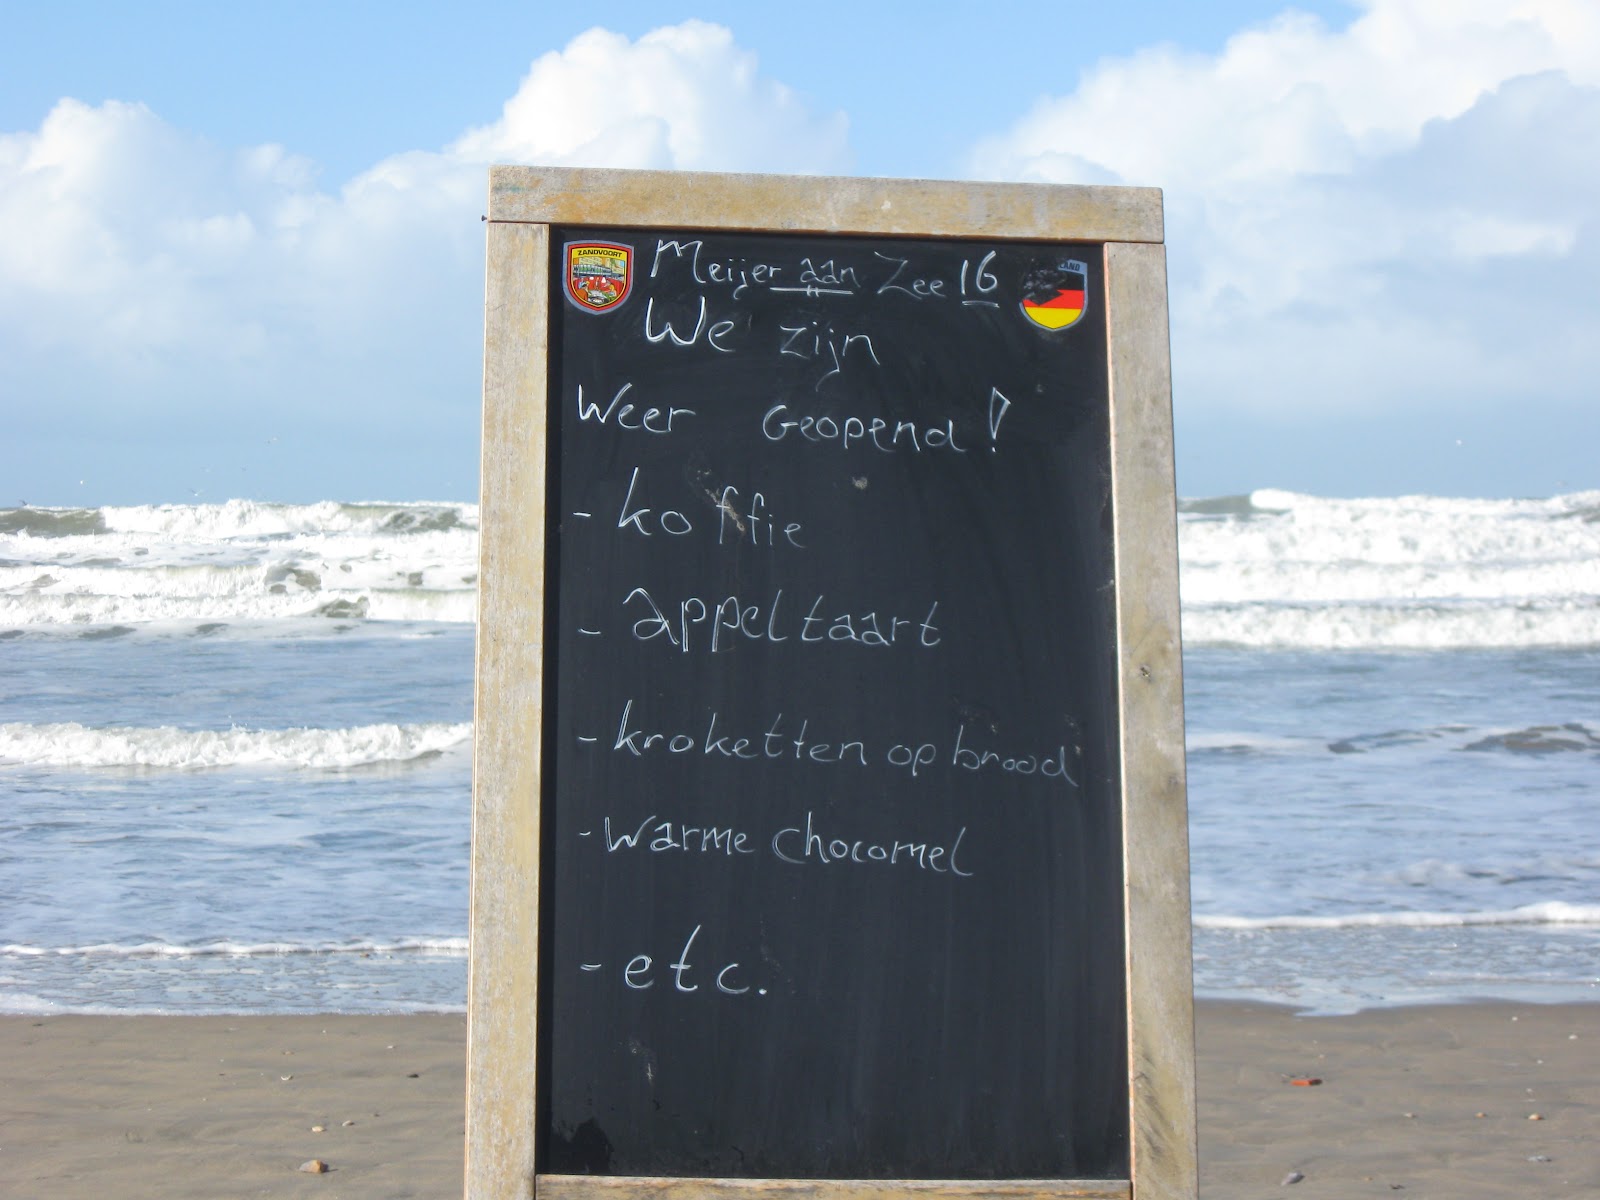 ZANDVOORT
Meijer aan Zee 16
We zijn
Weer Geopend!
- koffie
- appeltaart
- kroketten op brood
- warme chocomel
- etc.